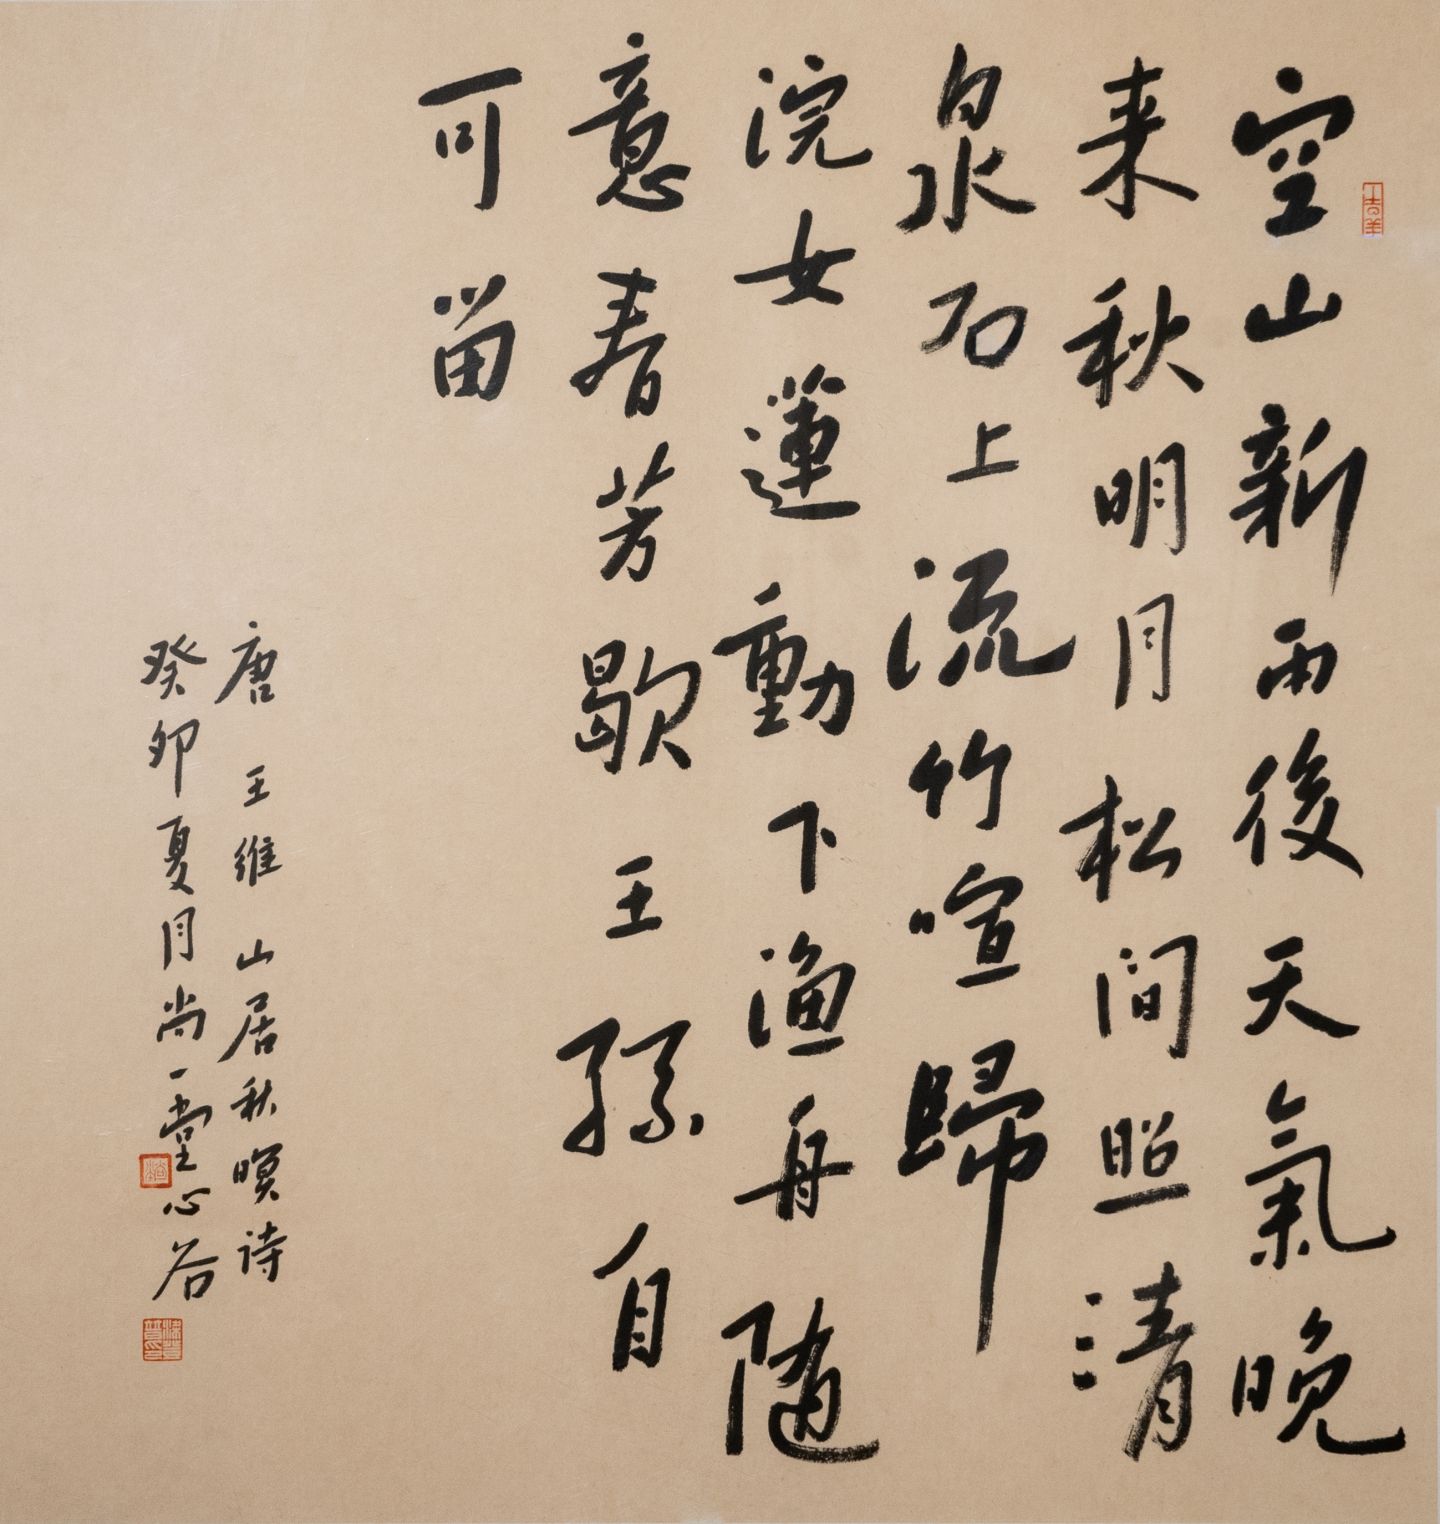 空山新雨後天氣晚
来秋明月松间照清
泉石上流竹喧歸
浣女蓮動下渔舟随
意春芳歇王孫自
可留
唐王维山居秋暝诗
癸卯夏月尚一堂心谷